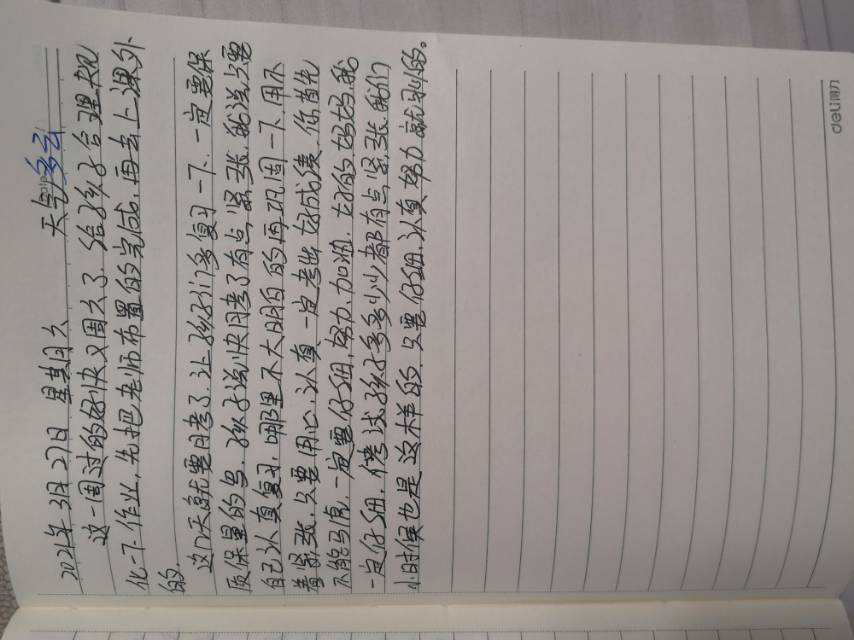 2021年3月27日 星期六 天气多云
这一周过的好快又周六了. 给孩子合理规
化一下作业, 先把老师布置的完成, 再去上课外
的.
这几天就要月考了. 让孩子们多复习一下、一定要保
质保量的写. 孩子说快月考了有点紧张. 我说只要
自己认真复习. 哪里不大明白的再巩固一下. 用不
着紧张. 只要用心. 认真一定考出好成绩. 你首先
不能马虎. 一定要仔细. 努力. 加油. 好的妈妈. 我
一定仔细. 考试孩子多多少少都有点紧张. 我们
小时候也是这样的. 只要仔细. 认真努力就可以的。
deli得力